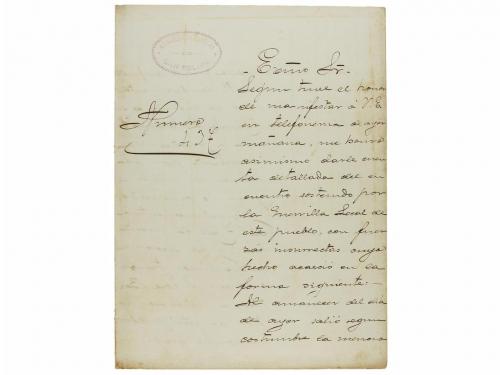 Numero
Exmo Sr.
Segun tuve el honor
de manifestar á V.E
en telefonema de ayer
mañana, me
asimismo darle cuen
ta detallada del en
cuentro sostenido por
la Guerrilla Local de
este pueblo, con fuer
zas insurrectas cuyo
hecho acaeció en la
forma siguiente.—
Al amanecer del dia
de ayer salió segun
costumbre la menora